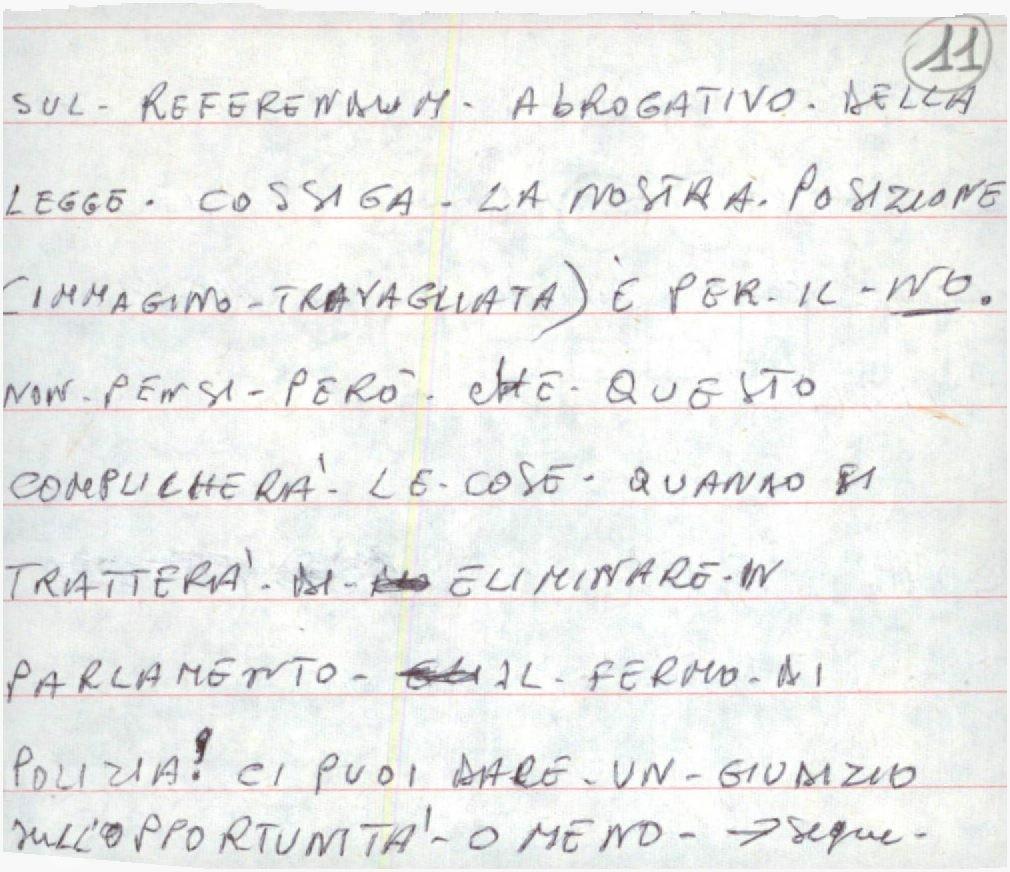 11
SUL - REFERENDUM - ABROGATIVO. DELLA
LEGGE. COSSIGA - LA NOSTRA. POSIZIONE
(IMMAGINO - TRAVAGLIATA) È PER. IL - NO.
NON. PENSI - PERÒ - CHE - QUESTO
COMPLICHERÀ - LE - COSE - QUANDO SI
TRATTERÀ - DI - ELIMINARE - IN
PARLAMENTO - IL - FERMO - DI
POLIZIA? CI PUOI DARE - UN - GIUDIZIO
SULL'OPPORTUNITÀ - O MENO - → segue -